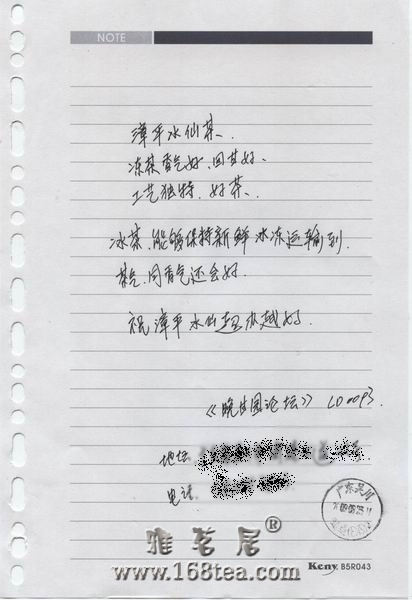 NOTE
漳平水仙茶、
冻茶香气好、回甘好、
工艺独特、好茶、
冰茶、能够保持新鲜冰冻运输到、
茶气、回香气还会好.
祝漳平水仙越办越好.
《晓生园论坛》 LD0093
地址
电话
广东吴川
雅茗居®
www.168tea.com
Keny B5R043